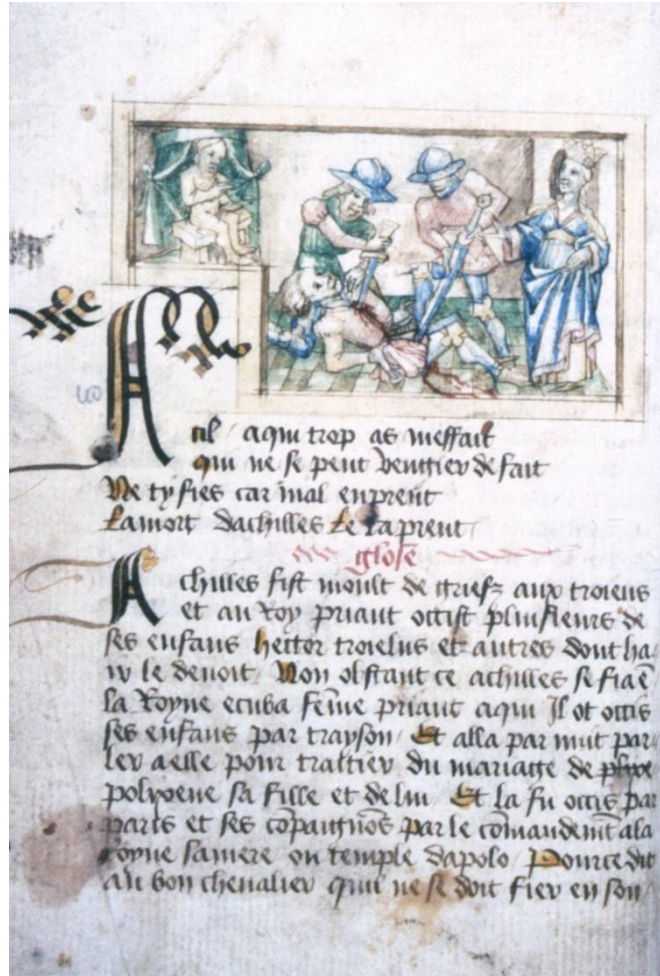 A cil aqui trop as meffait
qui ne se peut vengier de fait
Ne ty fies car mal enprent
La mort dachilles le taprent
glose
Achilles fist moult de griefz aux troiens
et au Roy priant occist pluisieurs de
ses enfans hector troielus et autres dont ha
ir le devoit Non obstant ce achilles se fia en
la Royne ecuba feme priant aqui Il ot occis
ses enfans par trayson Et alla par nuit par
ler a elle pour traitier du mariage de plixe
polixene sa fille et de lui Et la fu occis par
paris et ses copaignos par le comandemt ala
royne sa mere ou temple dapolo Pource dit
au bon chevalier qui ne se doit fier en son